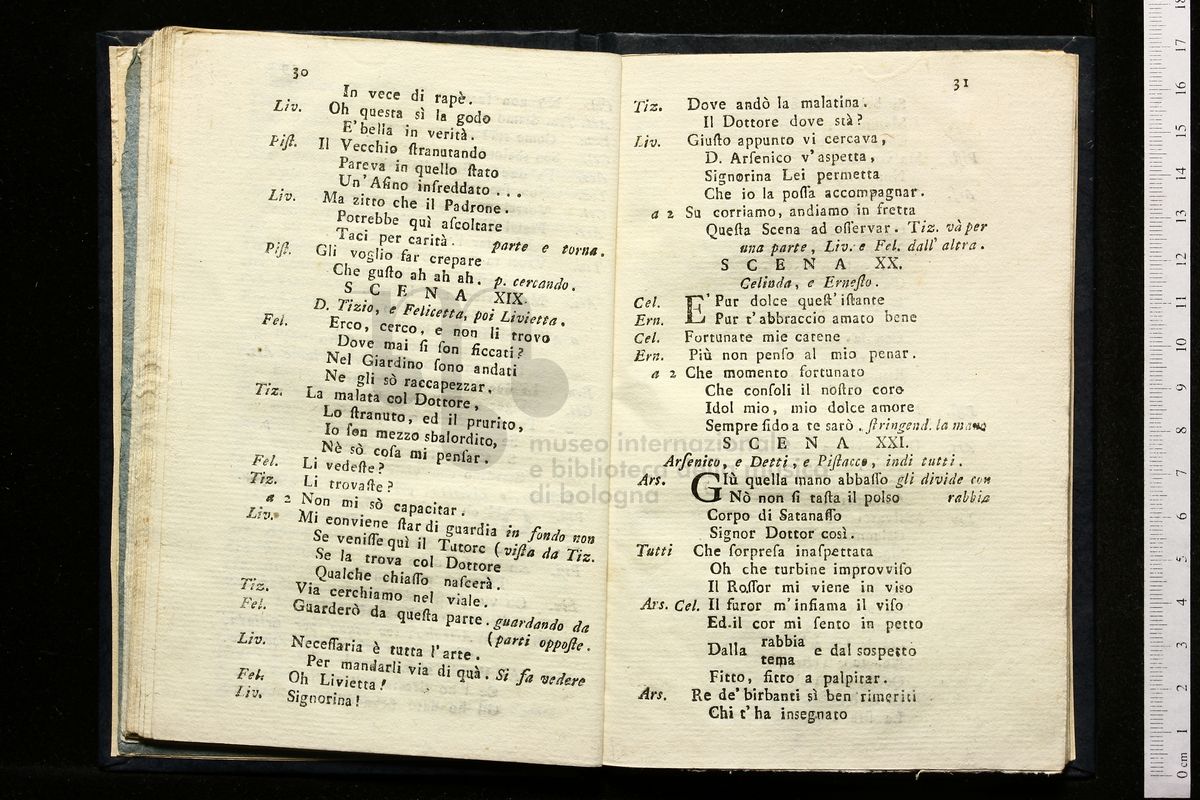 30
In vece di rapè.
Liv. Oh questa sì la godo
E' bella in verità.
Piſt. Il Vecchio ſtranutando
Pareva in quello ſtato
Un' Aſino inſreddato . . .
Liv. Ma zitto che il Padrone.
Potrebbe quì aſcoltare
Taci per carità. parte e torna.
Piſt. Gli voglio far crepare
Che guſto ah ah ah. p. cercando.
SCENA XIX.
D. Tizio, e Felicetta, poi Livietta.
Fel. Erco, cerco, e non li trovo
Dove mai ſi ſon ficcati?
Nel Giardino ſono andati
Ne gli sò raccapezzar.
Tiz. La malata col Dottore,
Lo ſtranuto, ed il prurito,
Io ſon mezzo sbalordito,
Nè sò coſa mi penſar.
Fel. Li vedeſte?
Tiz. Li trovaſte?
a 2 Non mi sò capacitar.
Liv. Mi eonviene ſtar di guardia in fondo non
Se veniſſe quì il Tutore (viſta da Tiz.
Se la trova col Dottore
Qualche chiaſſo naſcerà.
Tiz. Via cerchiamo nel viale.
Fel. Guarderò da queſta parte. guardando da
(parti oppoſte.
Liv. Neceſſaria è tutta l'arte.
Per mandarli via di quà. Si fa vedere
Fel. Oh Livietta!
Liv. Signorina!
31
Tiz. Dove andò la malatina.
Il Dottore dove stà?
Liv. Giuſto appunto vi cercava,
D. Arſenico v'aspetta,
Signorina Lei permetta
Che io la poſſa accompagnar.
a 2 Su corriamo, andiamo in fretta
Queſta Scena ad oſſervar. Tiz. và per
una parte, Liv. e Fel. dall' altra.
SCENA XX.
Celinda, e Erneſto.
Cel. E' Pur dolce queſt' iſtante
Ern. Pur t'abbraccio amato bene
Cel. Fortunate mie catene
Ern. Più non penſo al mio penar.
a 2 Che momento fortunato
Che conſoli il noſtro core
Idol mio, mio dolce amore
Sempre fido a te sarò. ſtringend. la mano
SCENA XXI.
Arſenico, e Detti, e Piſtacco, indi tutti.
Ars. GIù quella mano abbaſſo gli divide con
Nò non ſi taſta il polso rabbia
Corpo di Satanaſſo
Signor Dottor così.
Tutti Che ſorpreſa inaſpettata
Oh che turbine improvviſo
Il Roſſor mi viene in viso
Ars. Cel. Il furor m'infiama il viſo
Ed il cor mi ſento in petto
Dalla rabbia e dal sospetto
tema
Fitto, fitto a palpitar.
Ars. Re de' birbanti sì ben rimeriti
Chi t'ha insegnato
museo internazionale
e biblioteca della musica
di bologna
0 cm 1 2 3 4 5 6 7 8 9 10 11 12 13 14 15 16 17 18